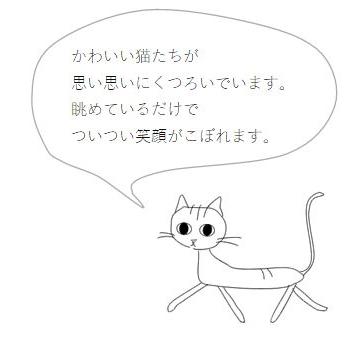 かわいい猫たちが
思い思いにくつろいでいます。
眺めているだけで
ついつい笑顔がこぼれます。